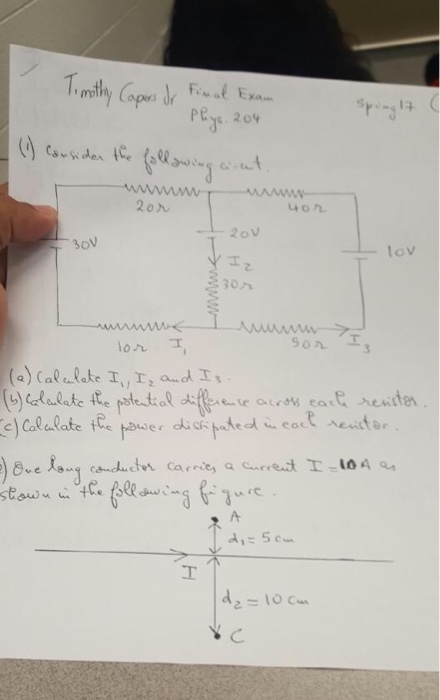 Timothy Capers Jr Final Exam
Phys. 204
Spring 17
(1) Consider the following
20Ω
40Ω
30V
20V
10V
I2
30Ω
10Ω
I1
50Ω
I3
(a) Calculate I1, I2 and I3.
(b) Calculate the potential difference across each resistor.
(c) Calculate the power dissipated in each resistor.
) One long conductor carries a current I = 10A as
shown in the following figure.
A
d1 = 5 cm
I
d2 = 10 cm
C